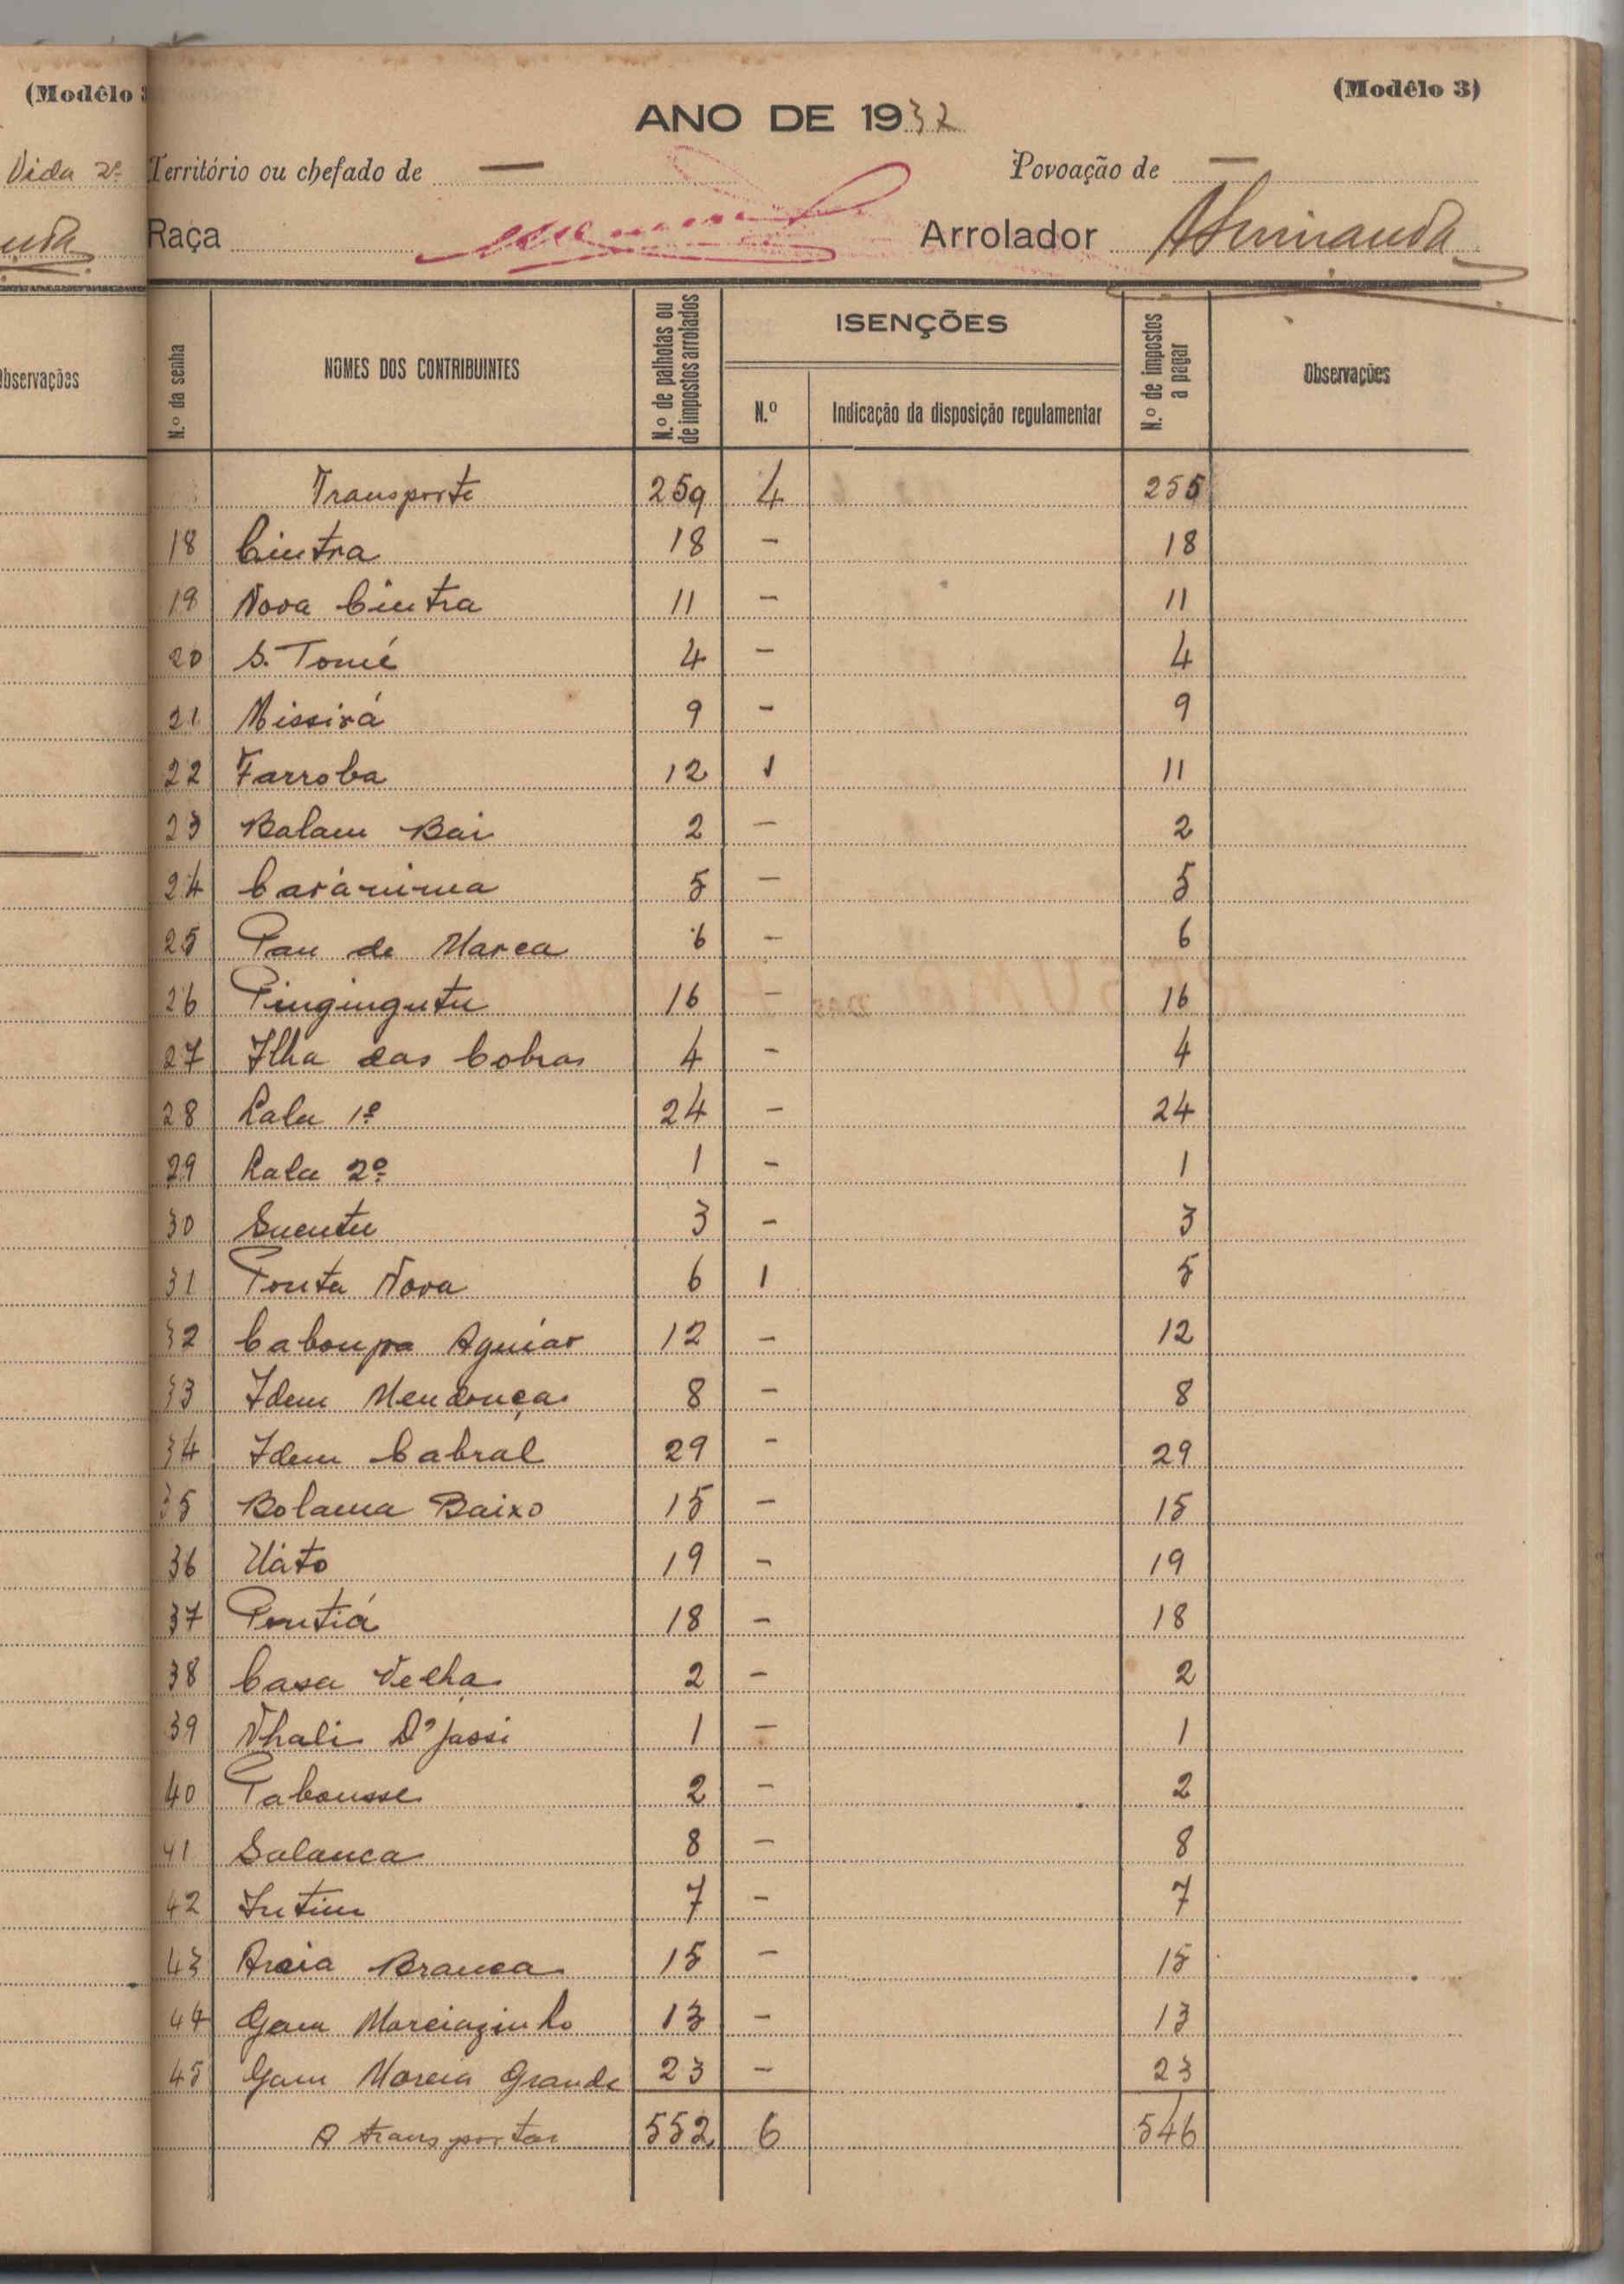 (Modêlo
Vida 2º
Observações
(Modêlo 3)
ANO DE 1932
Território ou chefado de — Povoação de —
Raça Arrolador
N.º da senha NOMES DOS CONTRIBUINTES N.º de palhotas ou de impostos arrolados ISENÇÕES N.º Indicação da disposição regulamentar N.º de impostos a pagar Observações
Transporte 259 4 255
18 Cintra 18 - 18
19 Nova Cintra 11 - 11
20 S. Tomé 4 - 4
21 Missirá 9 - 9
22 Farroba 12 1 11
23 Balam Bai 2 - 2
24 Caránima 5 - 5
25 Pau de Marca 6 - 6
26 Pingingutu 16 - 16
27 Ilha das Cobras 4 - 4
28 Lala 1º 24 - 24
29 Lala 2º 1 - 1
30 Sucutu 3 - 3
31 Ponta Nova 6 1 5
32 Caboupa Aguiar 12 - 12
33 Idem Mendonças 8 - 8
34 Idem Cabral 29 - 29
35 Bolama Baixo 15 - 15
36 Uáto 19 - 19
37 18 - 18
38 Casa Velha 2 - 2
39 D'Jassi 1 - 1
40 Tabousse 2 - 2
41 Salanca 8 - 8
42 Intim 7 - 7
43 Areia Branca 15 - 15
44 Gam 13 - 13
45 Gam Grande 23 - 23
A transportar 552 6 546